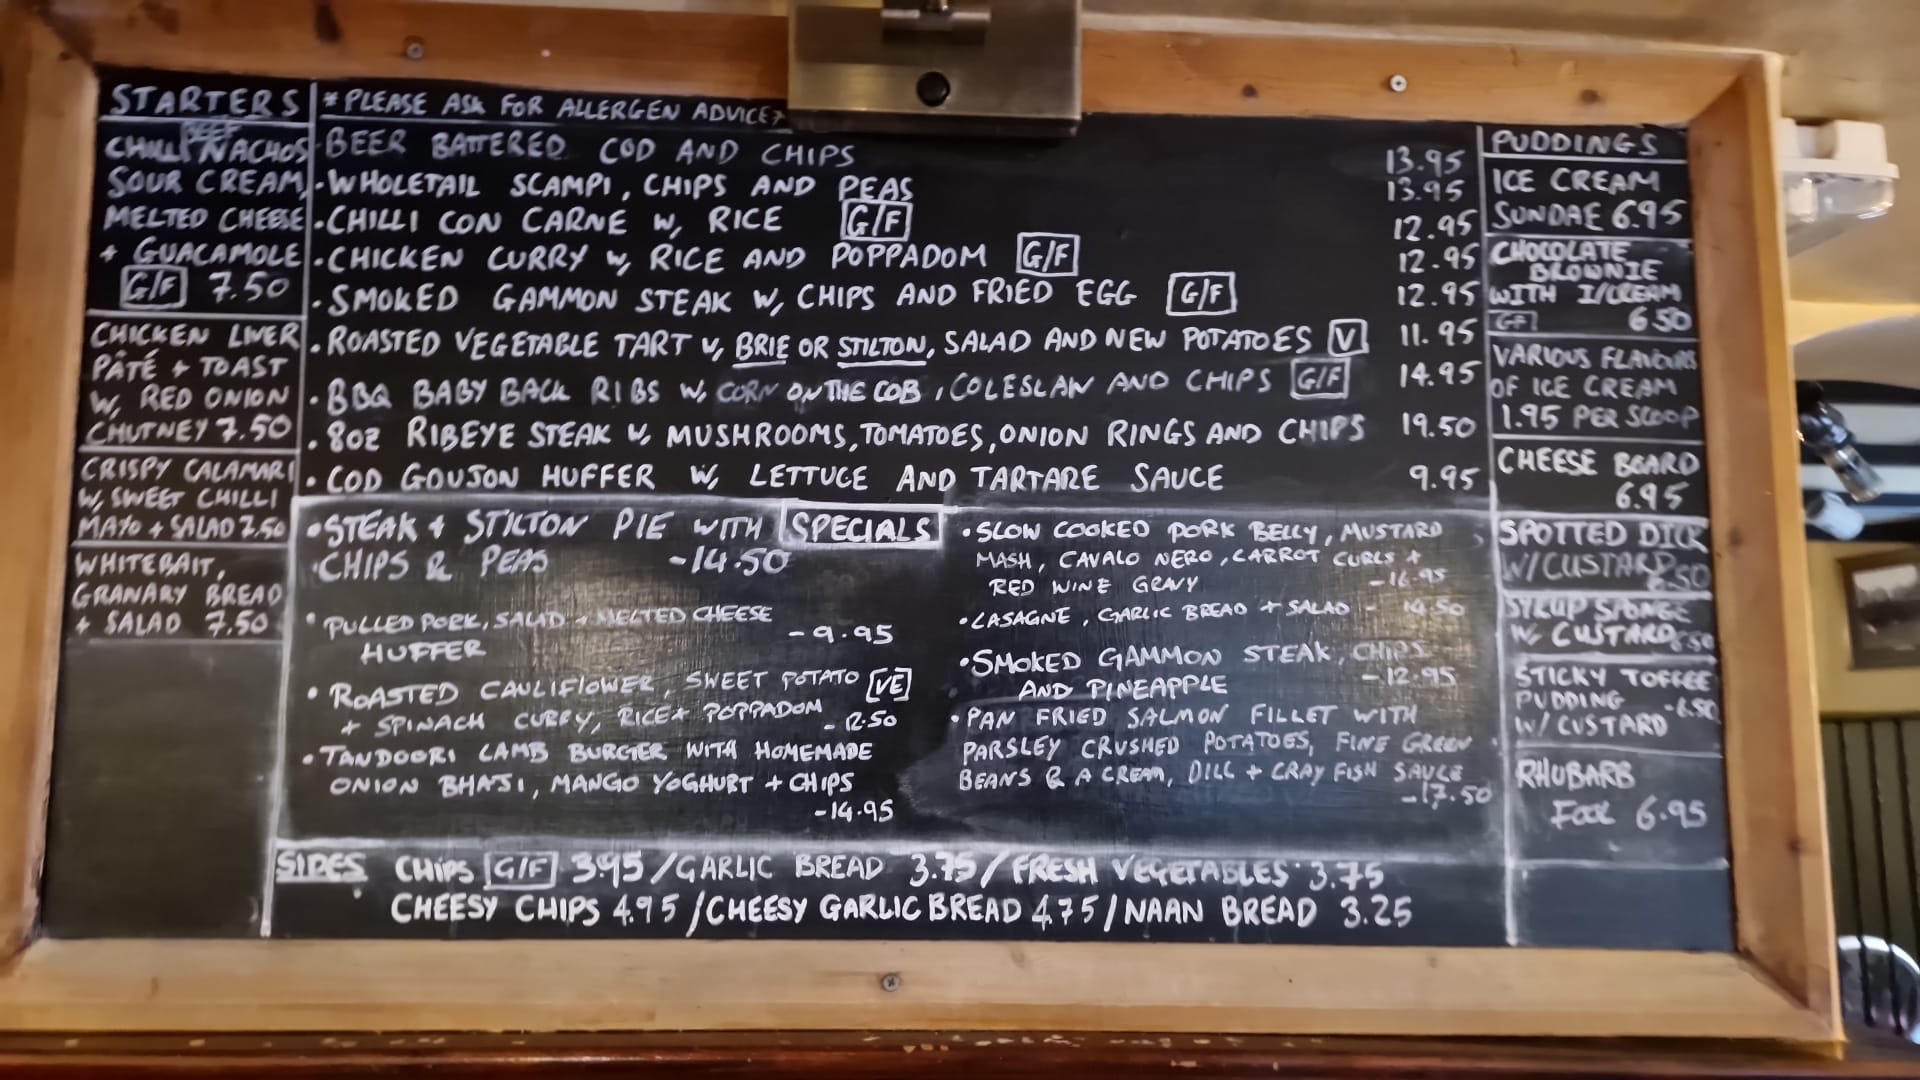 STARTERS
BEEF
CHILLI NACHOS
SOUR CREAM,
MELTED CHEESE
+ GUACAMOLE
G/F 7.50
CHICKEN LIVER
PÂTÉ + TOAST
W, RED ONION
CHUTNEY 7.50
CRISPY CALAMARI
W, SWEET CHILLI
MAYO + SALAD 7.50
WHITEBAIT,
GRANARY BREAD
+ SALAD 7.50
*PLEASE ASK FOR ALLERGEN ADVICE*
·BEER BATTERED COD AND CHIPS 13.95
·WHOLETAIL SCAMPI, CHIPS AND PEAS 13.95
·CHILLI CON CARNE W, RICE G/F 12.95
·CHICKEN CURRY W, RICE AND POPPADOM G/F 12.95
·SMOKED GAMMON STEAK W, CHIPS AND FRIED EGG G/F 12.95
·ROASTED VEGETABLE TART W, BRIE OR STILTON, SALAD AND NEW POTATOES V 11.95
·BBQ BABY BACK RIBS W, CORN ON THE COB, COLESLAW AND CHIPS G/F 14.95
·8OZ RIBEYE STEAK W, MUSHROOMS, TOMATOES, ONION RINGS AND CHIPS 19.50
·COD GOUJON HUFFER W, LETTUCE AND TARTARE SAUCE 9.95
SPECIALS
·STEAK + STILTON PIE WITH
CHIPS & PEAS -14.50
·PULLED PORK, SALAD + MELTED CHEESE
HUFFER -9.95
·ROASTED CAULIFLOWER, SWEET POTATO VE
+ SPINACH CURRY, RICE + POPPADOM -12.50
·TANDOORI LAMB BURGER WITH HOMEMADE
ONION BHAJI, MANGO YOGHURT + CHIPS
-14.95
·SLOW COOKED PORK BELLY, MUSTARD
MASH, CAVALO NERO, CARROT CURLS +
RED WINE GRAVY -16.95
·LASAGNE, GARLIC BREAD + SALAD - 14.50
·SMOKED GAMMON STEAK, CHIPS
AND PINEAPPLE -12.95
·PAN FRIED SALMON FILLET WITH
PARSLEY CRUSHED POTATOES, FINE GREEN
BEANS & A CREAM, DILL + CRAY FISH SAUCE
-17.50
SIDES CHIPS G/F 3.95 / GARLIC BREAD 3.75 / FRESH VEGETABLES 3.75
CHEESY CHIPS 4.95 / CHEESY GARLIC BREAD 4.75 / NAAN BREAD 3.25
PUDDINGS
ICE CREAM
SUNDAE 6.95
CHOCOLATE
BROWNIE
WITH I/CREAM
GF 6.50
VARIOUS FLAVOURS
OF ICE CREAM
1.95 PER SCOOP
CHEESE BOARD
6.95
SPOTTED DICK
W/CUSTARD 6.50
SYRUP SPONGE
W/ CUSTARD 6.50
STICKY TOFFEE
PUDDING -6.50
W/ CUSTARD
RHUBARB
FOOL 6.95